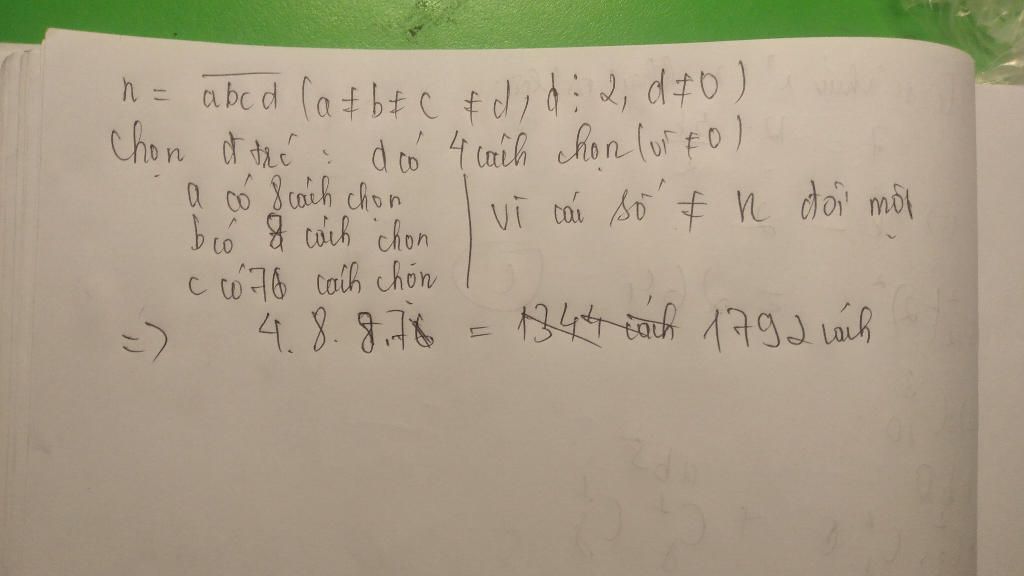 n = abcd (a ≠ b ≠ c ≠ d, d ⋮ 2, d ≠ 0)
Chọn d trc : d có 4 cách chọn (vì ≠ 0)
a có 8 cách chọn
b có 8 cách chọn
c có 7 cách chọn
vì các số ≠ n đôi một
=> 4. 8. 8.7 = 1344 cách 1792 cách